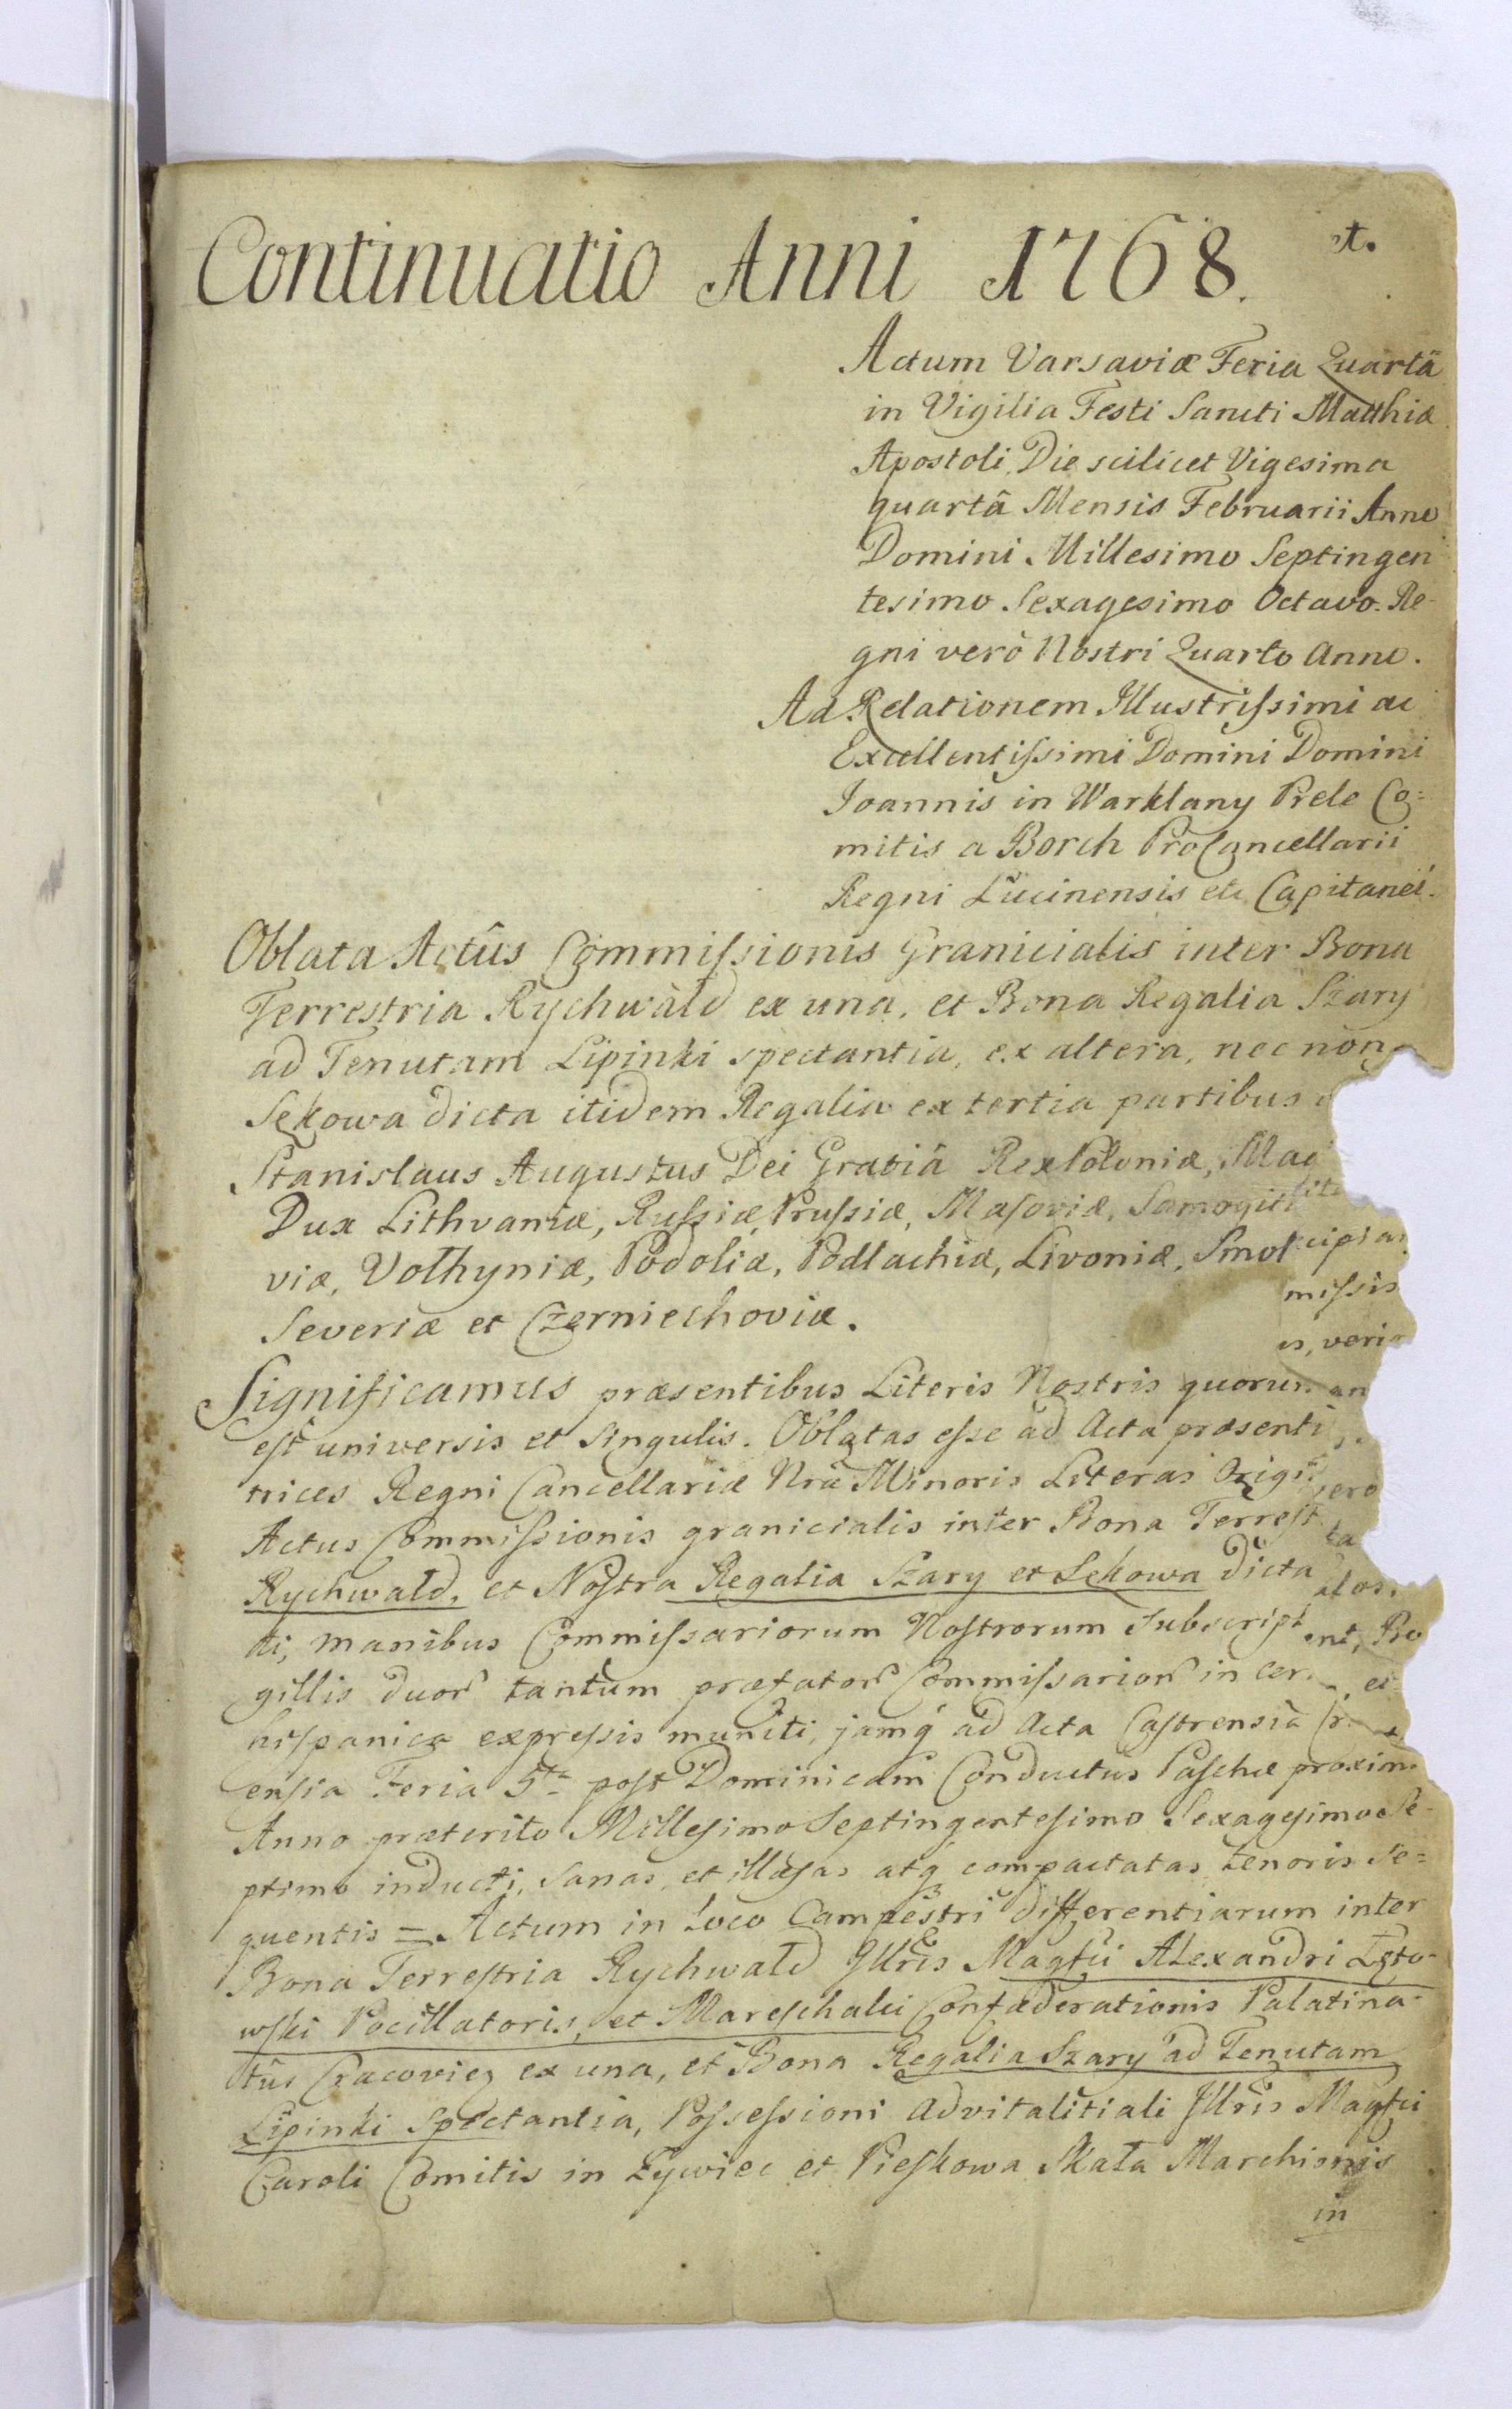 Continuatio Anni 1768.
Actum Varsaviæ Feria Quartâ
in Vigilia Festi Sancti Matthiæ
Apostoli, Die scilicet Vigesima
quartâ Mensis Februarii Anno
Domini Millesimo Septingen
tesimo Sexagesimo Octavo. Re-
gni verò Nostri Quarto Anno.
Ad Relationem Illustriſsimi ac
Excellentiſsimi Domini Domini
Joannis in Warklany Prele Co=
mitis a Borch ProCancellarii
Regni Lucinensis etc Capitanei.
Oblata Actûs Commiſsionis Granicialis inter Bona
Terrestria Rychwald ex una, et Bona Regalia Szary
ad Tenutam Lipinki spectantia, ex altera, nec non
Sękowa dicta itidem Regalia ex tertia partibus
Stanislaus Augustus Dei Gratiâ Rex Poloniæ, Mag
Dux Lithvaniæ, Ruſsiæ, Pruſsiæ, Maſoviæ, Samogit
viæ, Volhyniæ, Podoliæ, Podlachiæ, Livoniæ, Smol
miſsis
Severiæ et Czerniechoviæ.
Significamus præsentibus Literis Nostris quorum
eſt universis et Singulis. Oblatas eſse ad Acta præsenti
trices Regni Cancellariæ Nrã Minoris Literas Orig
Actus Commiſsionis granicialis inter Bona Terreſt
Rychwald, et Noſtra Regalia Szary et Sękowa dicta
di, manibus Commiſsariorum Noſtrorum Subscript
gillis duor tantum præfator Commiſsarior in cer
hiſpanica expreſsis muniti, jamq́ ad Acta Caſtrensia Cr
cenſia Feria 5ta poſt Dominicam Conductus Paſchæ proxim
Anno præterito Milleſimo Septingenteſimo Sexageſimo Se-
ptimo inducti, Sanas, et illæſas atq́ compactatas tenoris Se=
quentis = Actum in Loco Campestri differentiarum inter
Bona Terreſtria Rychwald Jllris Magfci Alexandri Łęto-
wſki Pocillatoris, et Mareſchalci Confæderationis Palatina-
tûs Cracovien ex una, et Bona Regalia Szary ad Tenutam
Lipinki Spectantia, Poſseſsioni Advitalitiali Jllris Magfci
Caroli Comitis in Zywiec et Pieſkowa Skała Marchionis
in